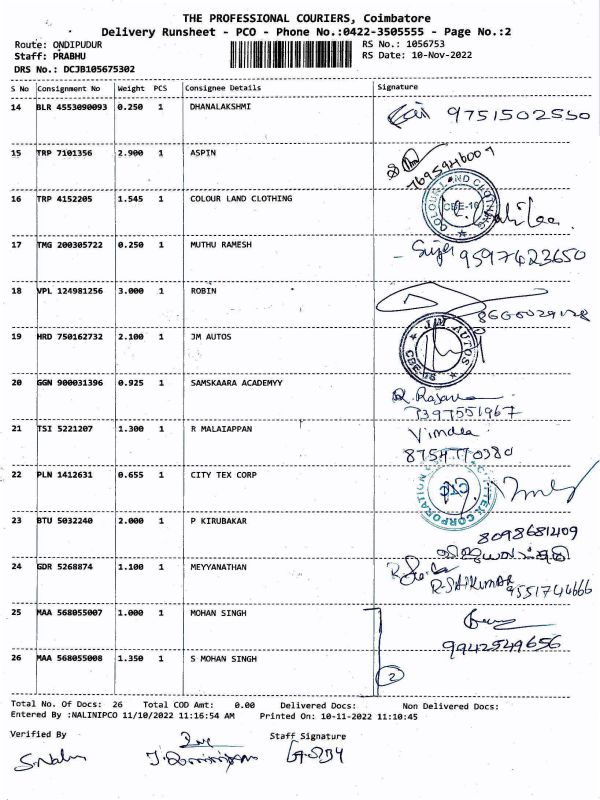 THE PROFESSIONAL COURIERS, Coimbatore
Delivery Runsheet - PCO - Phone No.:0422-3505555 - Page No.:2
Route: ONDIPUDUR RS No.: 1056753
Staff: PRABHU RS Date: 10-Nov-2022
DRS No.: DCJB105675302
S No Consignment No Weight PCS Consignee Details Signature
14 BLR 4553090093 0.250 1 DHANALAKSHMI 9751502550
15 TRP 7101356 2.900 1 ASPIN
16 TRP 4152205 1.545 1 COLOUR LAND CLOTHING COLOUR LAND CLOTHING
17 TMG 200305722 0.250 1 MUTHU RAMESH 9597423650
18 VPL 124981256 3.000 1 ROBIN
19 HRD 750162732 2.100 1 JM AUTOS JM AUTOS
20 GGN 900031396 0.925 1 SAMSKAARA ACADEMYY
7397551967
21 TSI 5221207 1.300 1 R MALAIAPPAN
8754770380
22 PLN 1412631 0.655 1 CITY TEX CORP CTC
23 BTU 5032240 2.000 1 P KIRUBAKAR 8098681409
24 GDR 5268874 1.100 1 MEYYANATHAN
R-SAIKUMAR 9551744666
25 MAA 568055007 1.000 1 MOHAN SINGH
9942549656
26 MAA 568055008 1.350 1 S MOHAN SINGH 2
Total No. Of Docs: 26 Total COD Amt: 0.00 Delivered Docs: Non Delivered Docs:
Entered By :NALINIPCO 11/10/2022 11:16:54 AM Printed On: 10-11-2022 11:10:45
Verified By Staff Signature